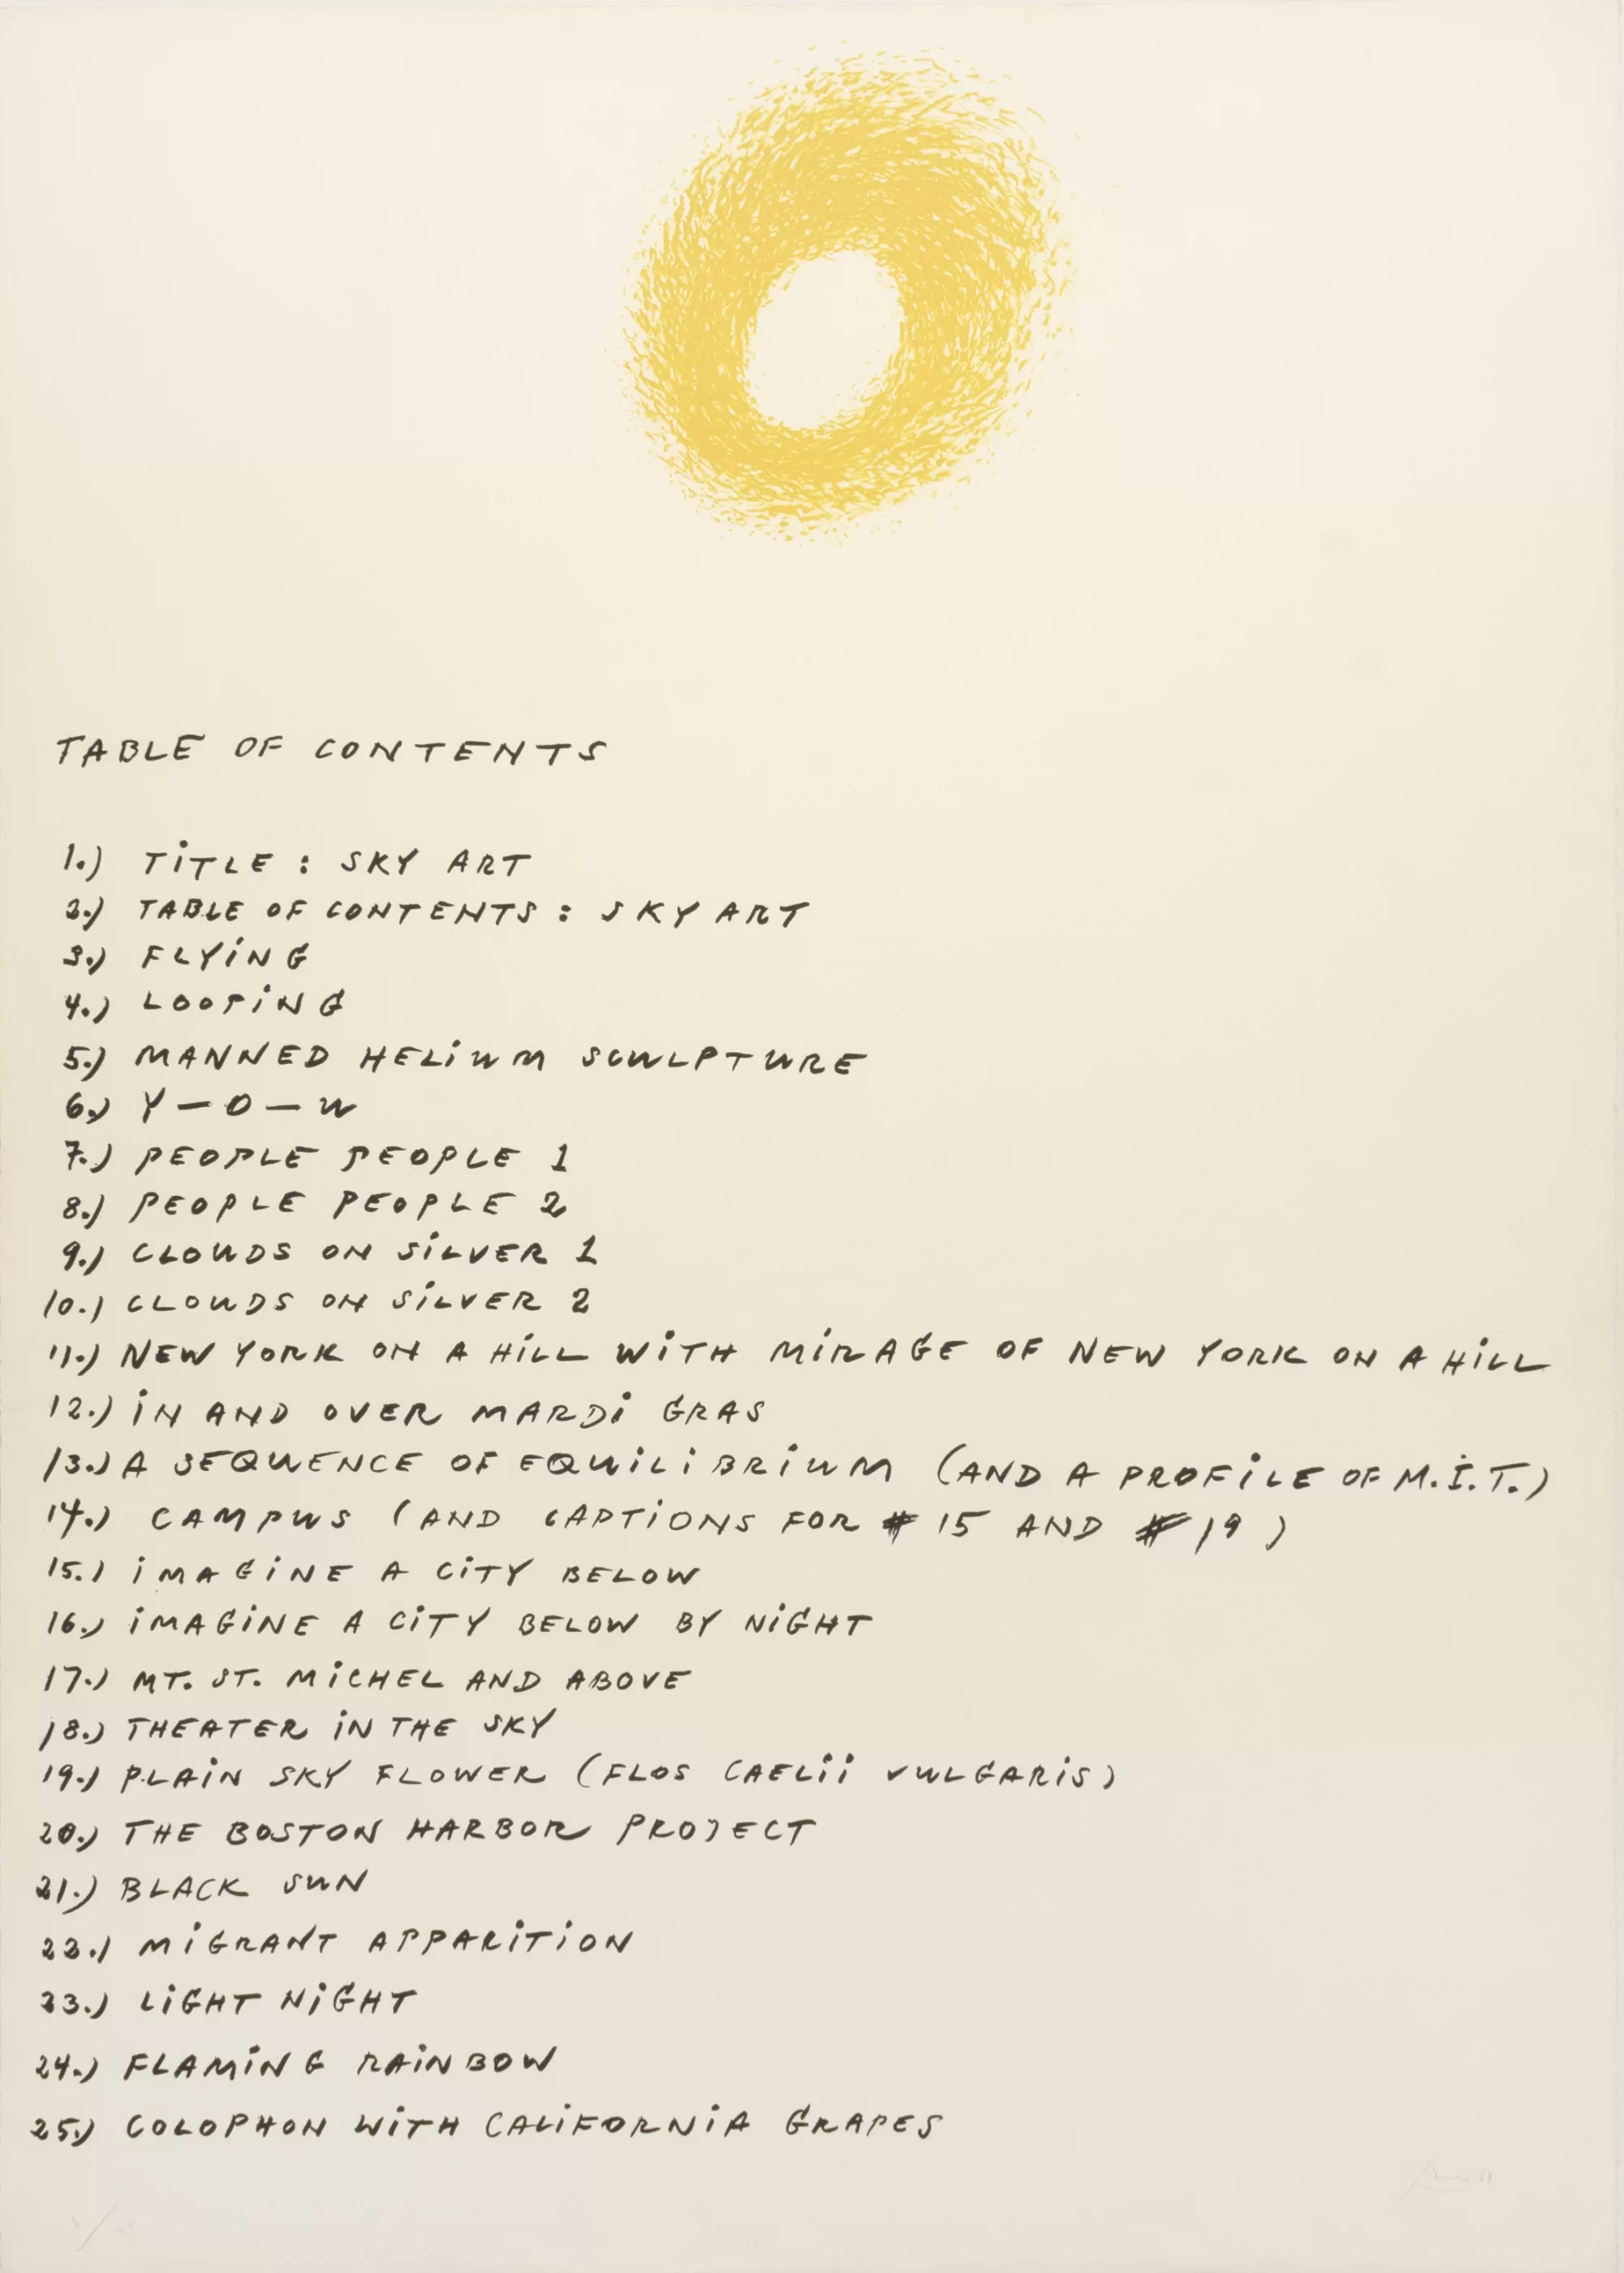 TABLE OF CONTENTS
1.) TiTLE : SKY ART
2.) TABLE OF CONTENTS : SKY ART
3.) FLYiNG
4.) LOOPiNG
5.) MANNED HELiUM SCULPTURE
6.) Y — O — U
7.) PEOPLE PEOPLE 1
8.) PEOPLE PEOPLE 2
9.) CLOUDS ON SiLVER 1
10.) CLOUDS ON SiLVER 2
11.) NEW YORK ON A HiLL WiTH MiRAGE OF NEW YORK ON A HiLL
12.) iN AND OVER MARDi GRAS
13.) A SEQUENCE OF EQUiLiBRiUM (AND A PROFiLE OF M.I.T.)
14.) CAMPUS (AND CAPTiONS FOR # 15 AND # 19)
15.) iMAGiNE A CiTY BELOW
16.) iMAGiNE A CiTY BELOW BY NiGHT
17.) MT. ST. MiCHEL AND ABOVE
18.) THEATER iN THE SKY
19.) PLAiN SKY FLOWER (FLOS CAELii VULGARiS)
20.) THE BOSTON HARBOR PROJECT
21.) BLACK SUN
22.) MiGRANT APPARiTiON
23.) LiGHT NiGHT
24.) FLAMiNG RAiNBOW
25.) COLOPHON WiTH CALiFORNiA GRAPES